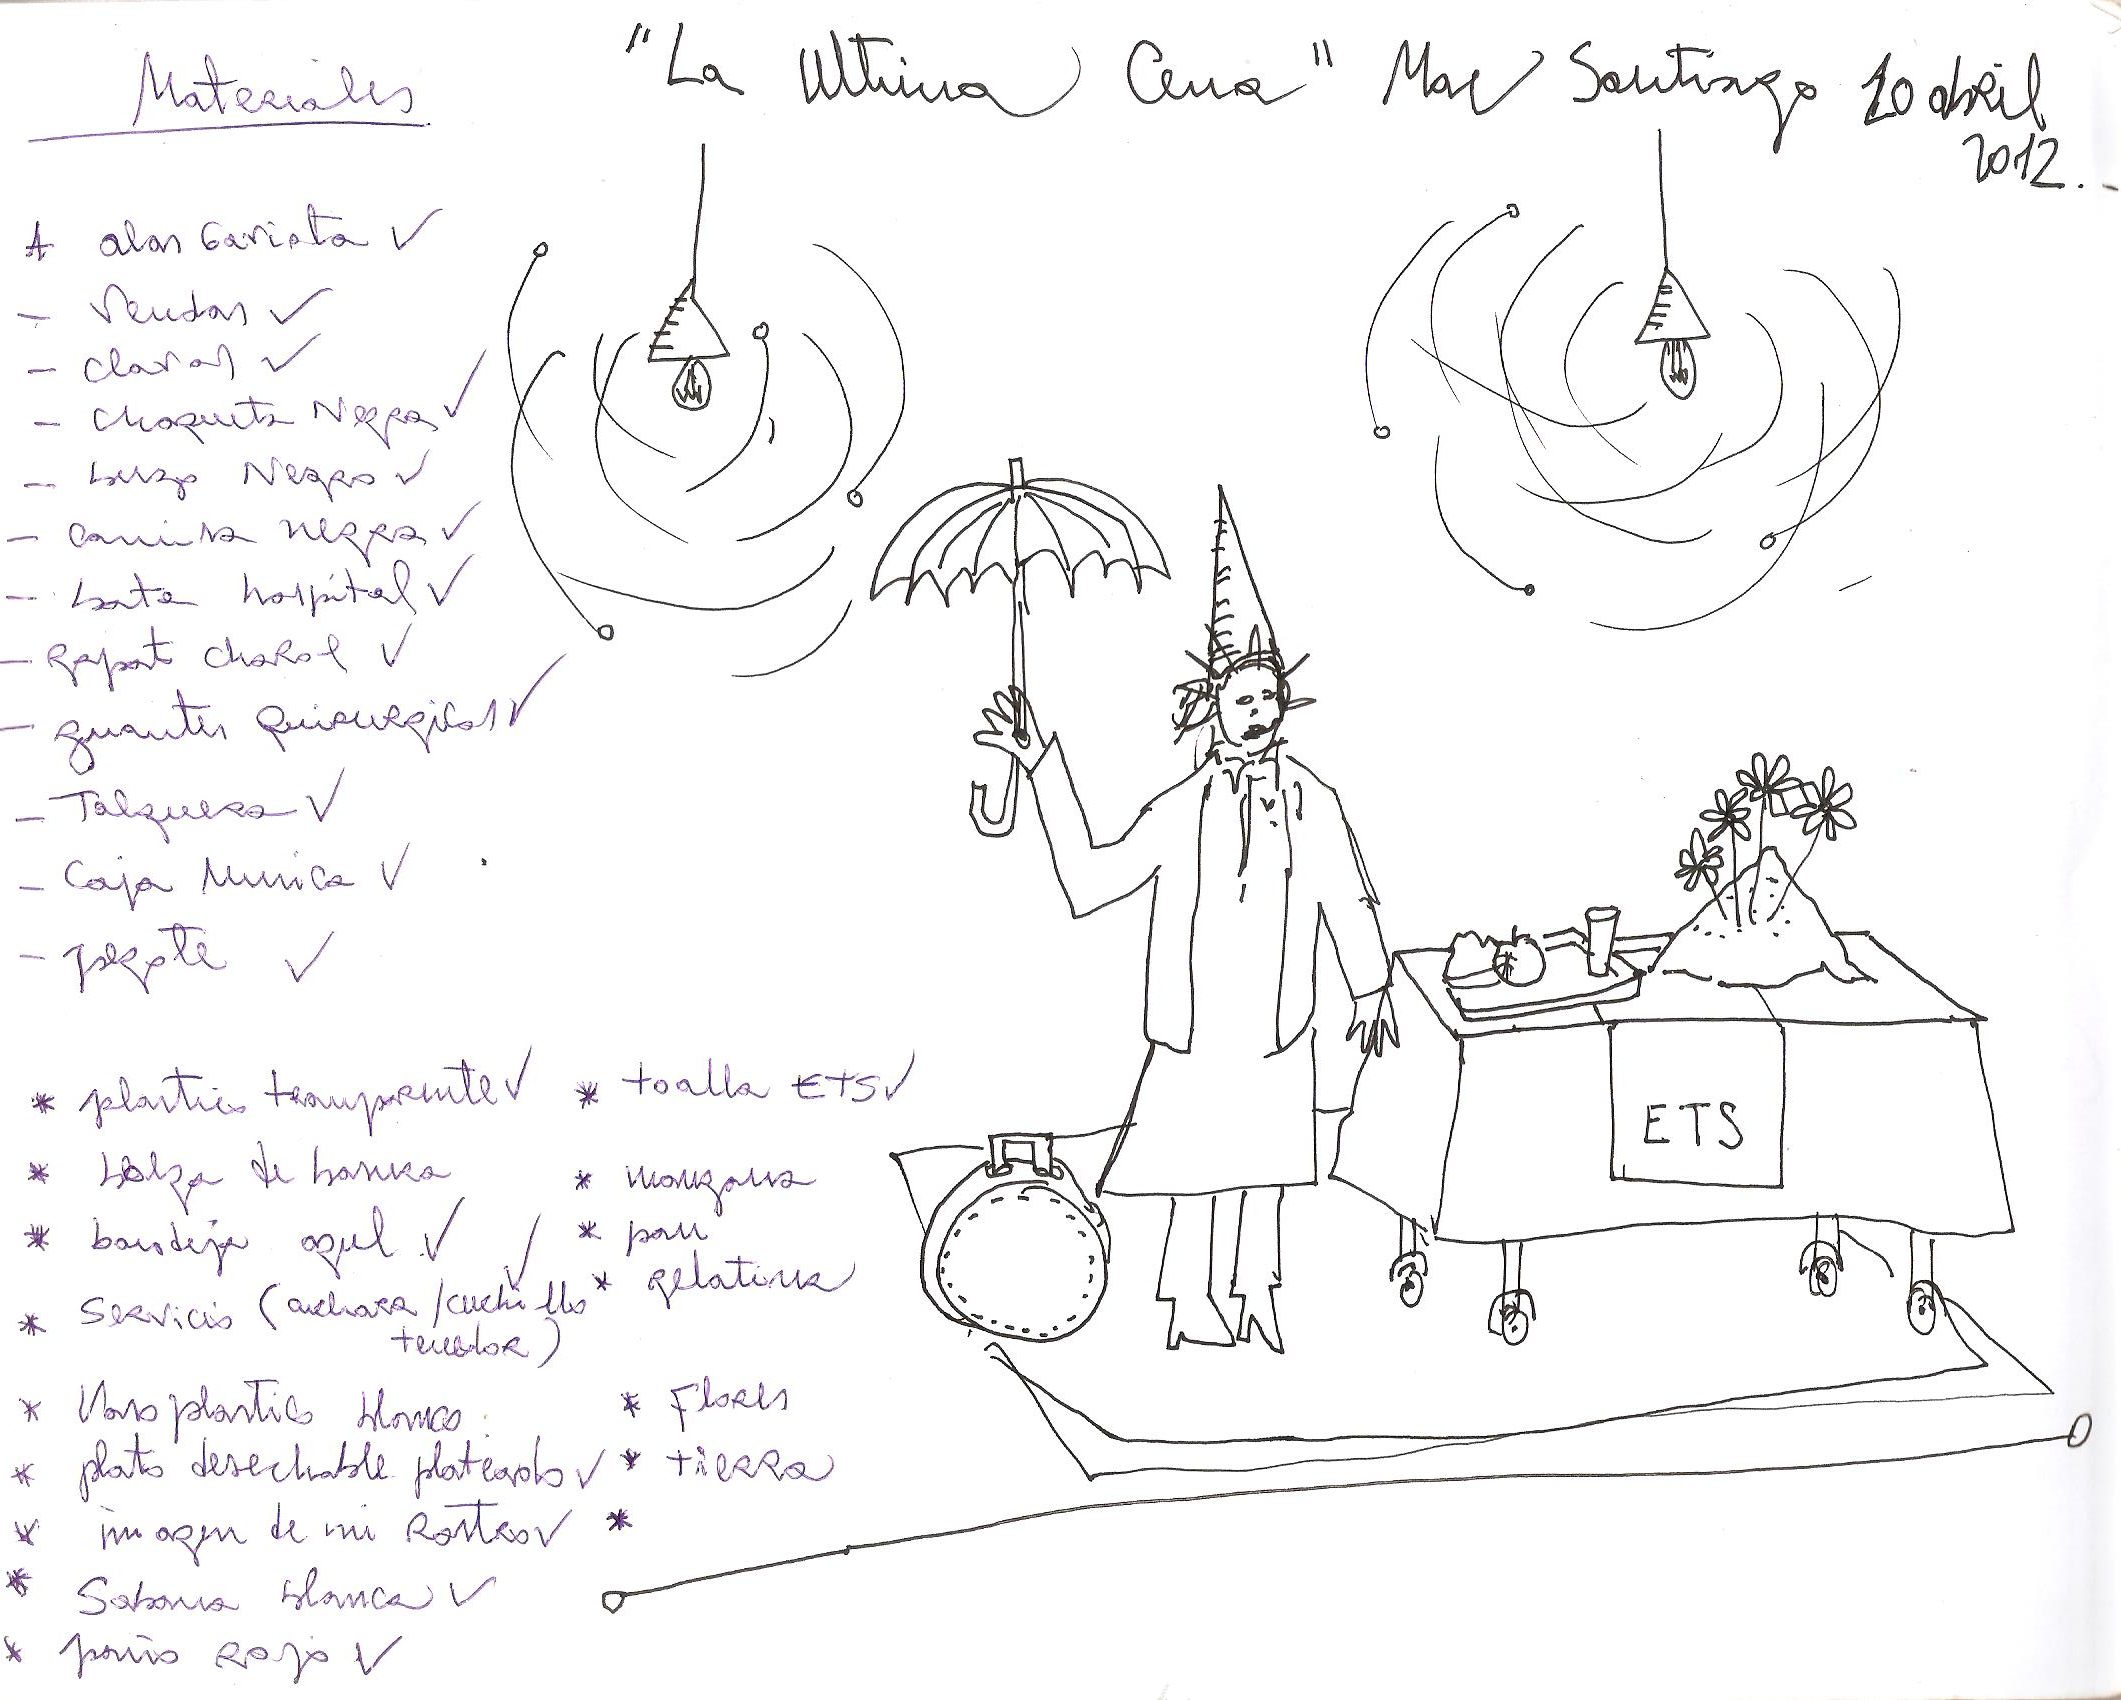 "La Ultima Cena" Mac Santiago 10 abril
2012.
Materiales
alas Gaviota
- Vendas
- clavos
- chaqueta Negra
- buzo Negro
- camisa negra
- bata hospital
- zapato charol
- guantes quirurgicos
- Talquera
- Caja Musica
-
* plastico transparente
* bolza de basura
* bandeja azul
* Servicio (cuchara/cuchillo
tenedor)
* Vaso plastico blanco
* plato desechable plateado
* imagen de mi Rostro
* Sabana blanca
* paño Rojo
* toalla ETS
* manzana
* pan
* gelatina
* Flores
* tierra
*
ETS